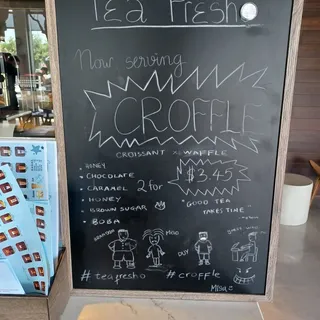 TEA FRESHO
Now serving
CROFFLE
CROISSANT x WAFFLE
HONEY
• CHOCOLATE
• CARAMEL
• HONEY
• BROWN SUGAR
• BOBA
2 for
$3.45
"GOOD TEA
TAKES TIME"
GUY
#teafresho
#croffle